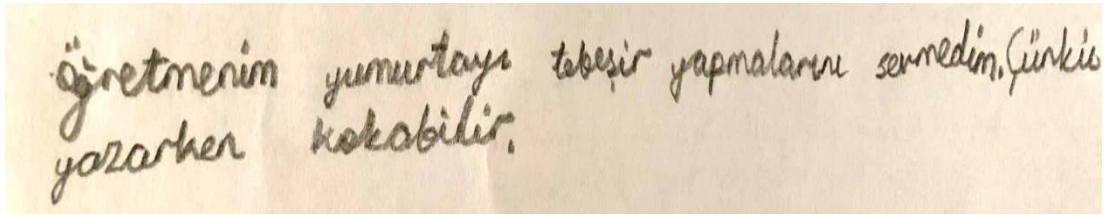 öğretmenim yumurtayı tebeşir yapmalarını sevmedim. Çünkü
yazarken kokabilir.